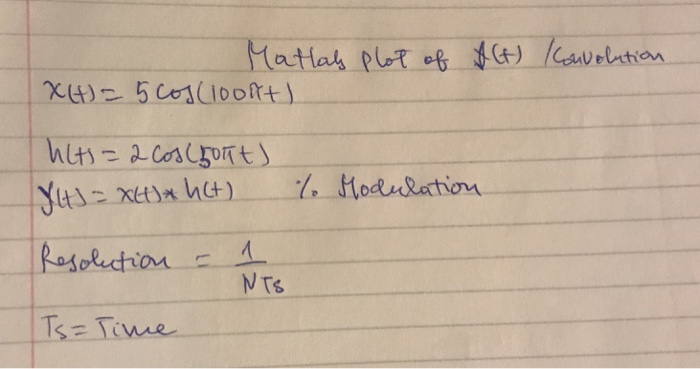 Matlab plot of y(t) /Convolution
x(t) = 5 cos(100πt)
h(t) = 2 cos(50πt)
y(t) = x(t) * h(t) % Modulation
Resolution = 1/NTs
Ts = Time